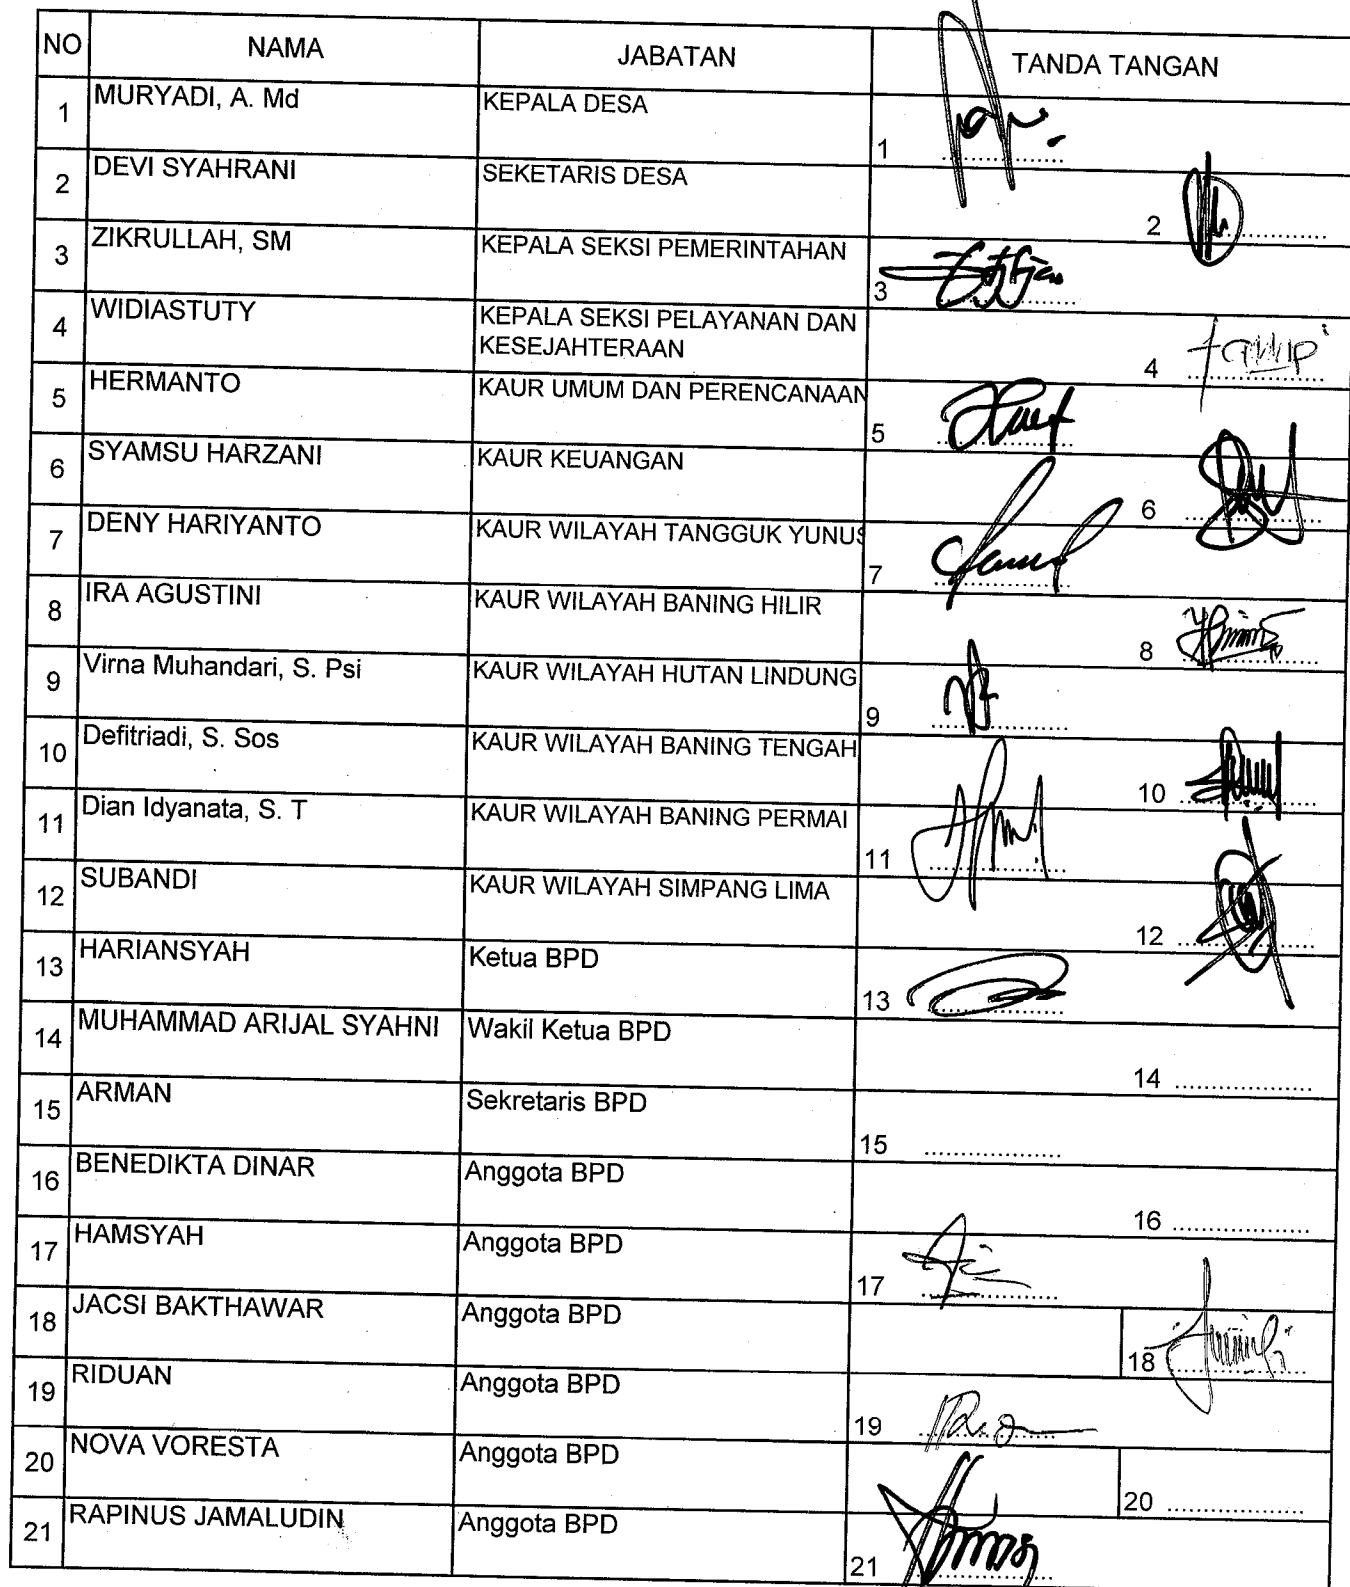 NO NAMA JABATAN TANDA TANGAN
1 MURYADI, A. Md KEPALA DESA 1 ....................
2 DEVI SYAHRANI SEKETARIS DESA 2 ....................
3 ZIKRULLAH, SM KEPALA SEKSI PEMERINTAHAN 3 ....................
4 WIDIASTUTY KEPALA SEKSI PELAYANAN DAN
KESEJAHTERAAN 4 ....................
5 HERMANTO KAUR UMUM DAN PERENCANAAN 5 ....................
6 SYAMSU HARZANI KAUR KEUANGAN 6 ....................
7 DENY HARIYANTO KAUR WILAYAH TANGGUK YUNUS 7 ....................
8 IRA AGUSTINI KAUR WILAYAH BANING HILIR 8 ....................
9 Virna Muhandari, S. Psi KAUR WILAYAH HUTAN LINDUNG 9 ....................
10 Defitriadi, S. Sos KAUR WILAYAH BANING TENGAH 10 ....................
11 Dian Idyanata, S. T KAUR WILAYAH BANING PERMAI 11 ....................
12 SUBANDI KAUR WILAYAH SIMPANG LIMA 12 ....................
13 HARIANSYAH Ketua BPD 13 ....................
14 MUHAMMAD ARIJAL SYAHNI Wakil Ketua BPD 14 ....................
15 ARMAN Sekretaris BPD 15 ....................
16 BENEDIKTA DINAR Anggota BPD 16 ....................
17 HAMSYAH Anggota BPD 17 ....................
18 JACSI BAKTHAWAR Anggota BPD 18 ....................
19 RIDUAN Anggota BPD 19 ....................
20 NOVA VORESTA Anggota BPD 20 ....................
21 RAPINUS JAMALUDIN Anggota BPD 21 ....................